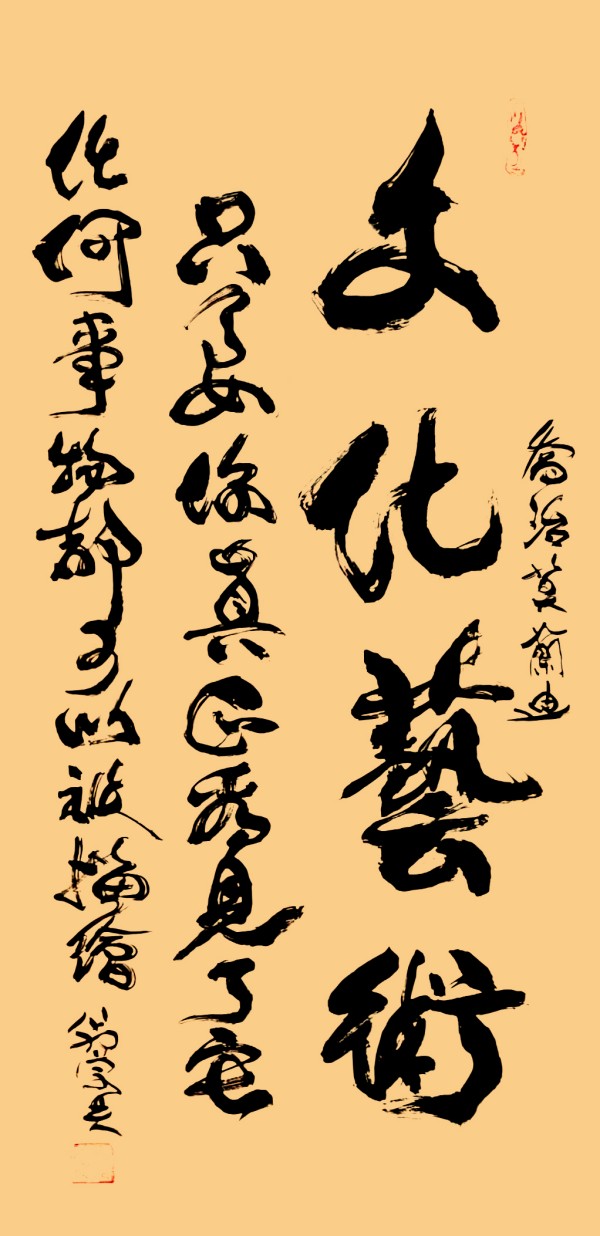 文化藝術
喬治莫蘭迪
只要你真正看見了它
任何事物都可以被描繪